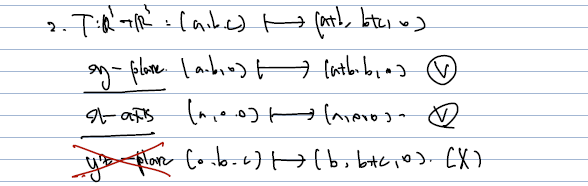 2. T: ℝ³→ℝ³ : (a.b.c) ⟼ (a+b, b+c, 0)
xy-plane. (a.b,0) ⟼ (a+b.b,0) Ⓥ
x-axis (a,0.0) ⟼ (a,0,0). Ⓥ
yz-plane (0.b.c) ⟼ (b, b+c,0). (X)